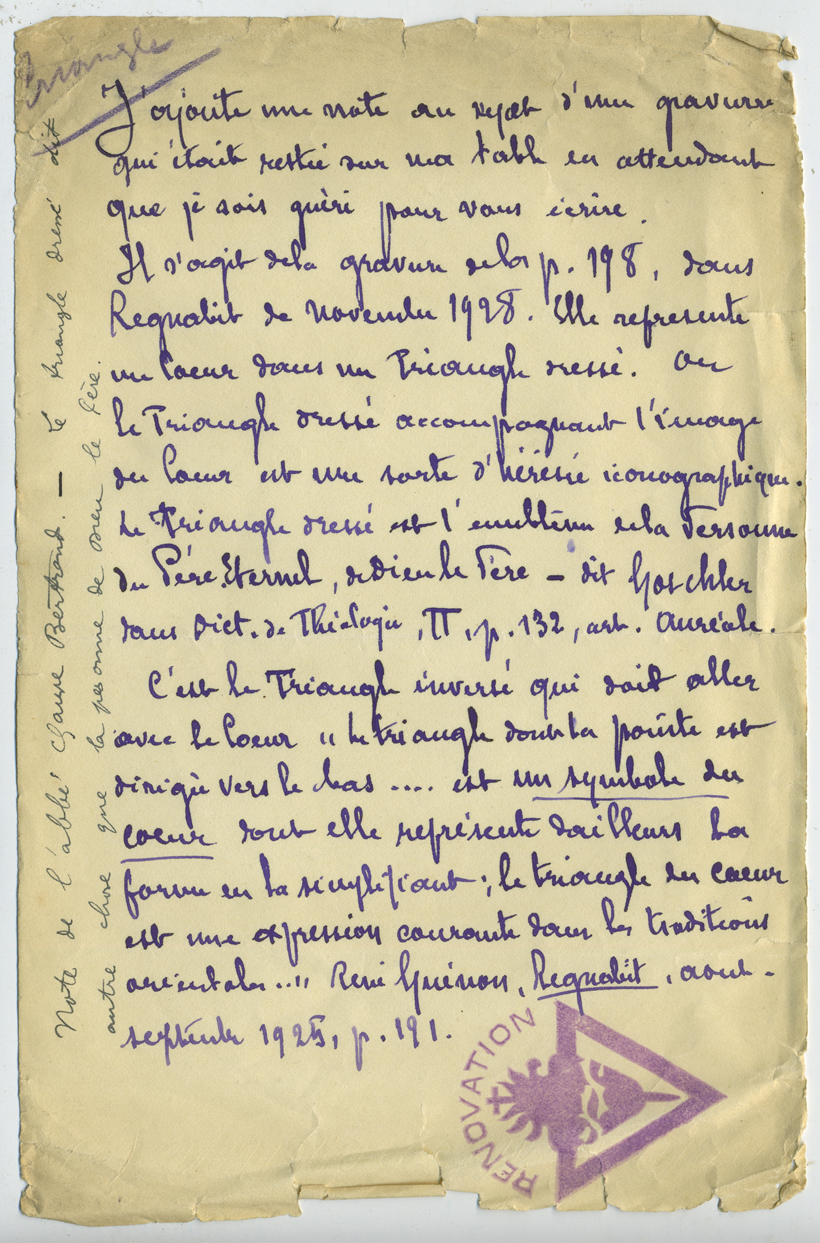 Triangle
J'ajoute une note au sujet d'une gravure
qui était restée sur ma table en attendant
que je sois guéri pour vous écrire.
Il s'agit de la gravure de la p. 198, dans
Regnabit de novembre 1928. Elle represente
un Coeur dans un Triangle dressé. Or
le Triangle dressé accompagnant l'image
du Coeur est une sorte d'hérésie iconographique.
Le Triangle dressé est l'emblème de la Personne
du Père Eternel, de Dieu le Père — dit Goschler
dans Dict. de Théologie, II, p. 132, art. Auréole.
C'est le Triangle inversé qui doit aller
avec le Coeur " Le triangle dont la pointe est
dirigée vers le bas .... est un symbole du
coeur dont elle représente d'ailleurs la
forme en la simplifiant ; le triangle du coeur
est une expression courante dans les traditions
orientales .." René Guénon, Regnabit, aout-
septembre 1925, p. 191.
Note de l'abbé Chauve Bertrand. — le triangle dressé dit
autre chose que la personne de Dieu le Père.
RENOVATION